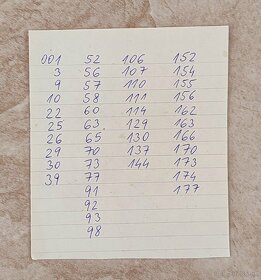 001 52 106 152
3 56 107 154
9 57 110 155
10 58 111 156
22 60 114 162
25 63 129 163
26 65 130 166
29 70 137 170
30 73 144 173
39 77 174
91 177
92
93
98